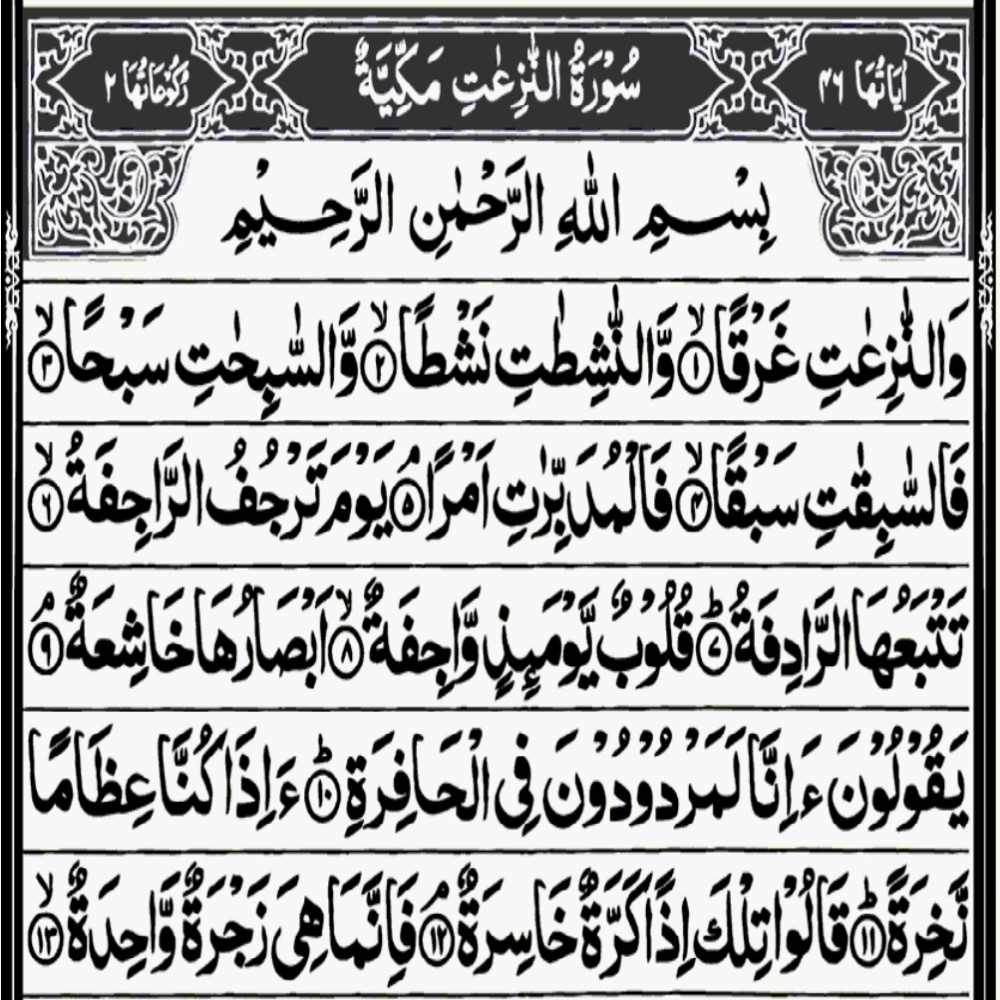 اٰيَاتُهَا ۴۶ سُوْرَةُ النّٰزِعٰتِ مَكِّيَّةٌ رُكُوْعَاتُهَا ۲
بِسْمِ اللّٰهِ الرَّحْمٰنِ الرَّحِيْمِ
وَالنّٰزِعٰتِ غَرْقًا ۙ‏﴿۱﴾ وَّالنّٰشِطٰتِ نَشْطًا ۙ‏﴿۲﴾ وَّالسّٰبِحٰتِ سَبْحًا ۙ‏﴿۳﴾
فَالسّٰبِقٰتِ سَبْقًا ۙ‏﴿۴﴾ فَالْمُدَبِّرٰتِ اَمْرًا ۘ‏﴿۵﴾ يَوْمَ تَرْجُفُ الرَّاجِفَةُ ۙ‏﴿۶﴾
تَتْبَعُهَا الرَّادِفَةُ ؕ‏﴿۷﴾ قُلُوْبٌ يَّوْمَئِذٍ وَّاجِفَةٌ ۙ‏﴿۸﴾ اَبْصَارُهَا خَاشِعَةٌ ۘ‏﴿۹﴾
يَقُوْلُوْنَ ءَاِنَّا لَمَرْدُوْدُوْنَ فِى الْحَافِرَةِ ؕ‏﴿۱۰﴾ ءَاِذَا كُنَّا عِظَامًا
نَّخِرَةً ؕ‏﴿۱۱﴾ قَالُوْا تِلْكَ اِذًا كَرَّةٌ خَاسِرَةٌ ۘ‏﴿۱۲﴾ فَاِنَّمَا هِىَ زَجْرَةٌ وَّاحِدَةٌ ۙ‏﴿۱۳﴾